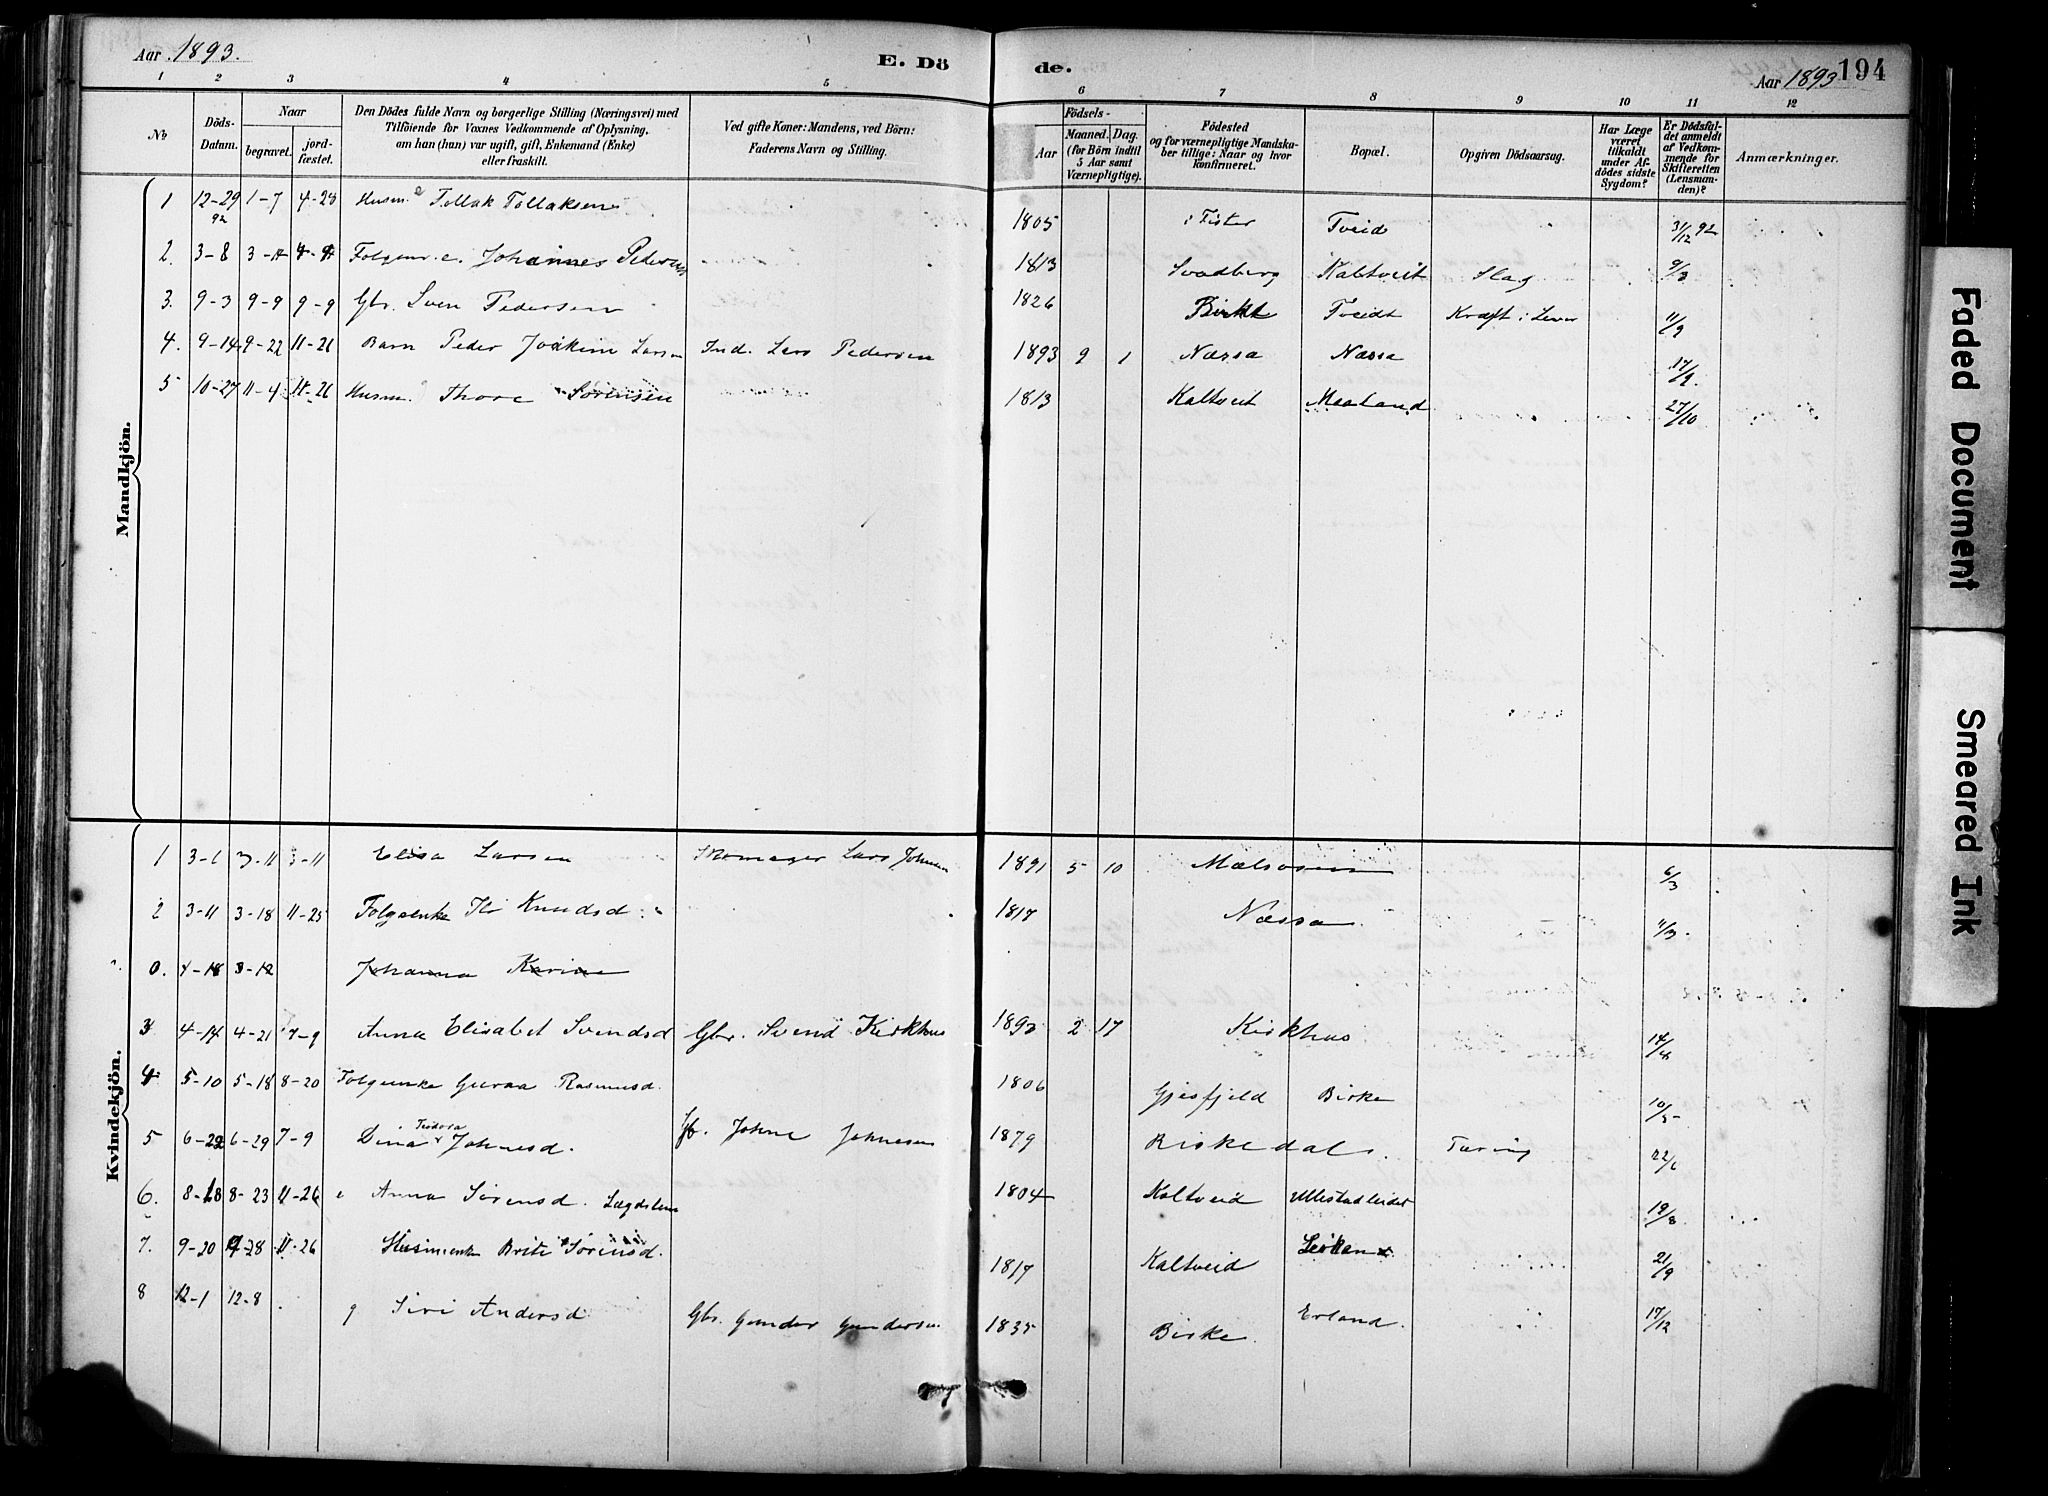 Aar 1893.
E. Dö
de.
Aar 1893
194
1 2 3 4 5 6 7 8 9 10 11 12
No
Döds-
Datum.
Naar
begravet.
jord-
fæstet.
Den Dödes fulde Navn og borgerlige Stilling (Næringsvei) med
Tilföiende for Voxnes Vedkommende af Oplysning,
om han (hun) var ugift, gift, Enkemand (Enke)
eller fraskilt.
Ved gifte Koner: Mandens, ved Börn:
Faderens Navn og Stilling.
Födsels-
Aar
Maaned. Dag.
(for Börn indtil
5 Aar samt
Værnepligtige).
Födested
og for værnepligtige Mandska-
ber tillige: Naar og hvor
konfirmeret.
Bopæl.
Opgiven Dödsaarsag.
Har Læge
været
tilkaldt
under Af-
dödes sidste
Sygdom?
Er Dödsfal-
det anmeldt
af Vedkom-
mende for
Skifteretten
(Lensman-
den)?
Anmærkninger.
Mandkjön.
1 12-29 92 1-7 4-23 Husm e Tollak Tollaksen 1805 i Fister Tveid 31/12 92
2. 3-8 3-11 Folgem. e. Johannes Pedersen 1813 Svadberg Kaltveit Slag 9/3
3. 9-3 9-9 9-9 Gbr. Sven Pedersen 1826 Birke Tveidt Kræft i Lever 11/9
4. 9-14 9-22 11-26 Barn Peder Joakim Larsen Ind. Lars Pedersen 1893 9 1 Næssa Næssa 17/9.
5 10-27 11-4 11-26 Husm. e Thore Sørensen 1813 Kaltveit Maaland 27/10
Kvindekjön.
1 3-6 3-11 3-11 Elisa Larsen Skomager Lars Johnsen 1891 5 10 Mælsosen 6/3
2 3-11 3-18 11-25 Folgeenke Knudsd. 1817 Næssa 11/3.
0. 4-18 3-12 Johanna Karine
3 4-14 4-21 7-9 Anna Elisabet Svendsd Gbr. Svend Kirkhus 1892 2 17 Kirkhus 14/4
4 5-10 5-18 8-20 Folgeenke Guraa Rasmusd. 1806 Gjesfjeld Birke 10/5
5 6-22 6-29 7-9 Dina Teodora Johnesd. Gb. Johne Johnesen 1879 Riskedal. Tæring 22/6
6. 8-18 8-23 11-26 e Anna Sørensd. Lægdslem 1804 Kaltveid Ullestadleidet 19/8
7. 9-20 9-28 11-26 Husmenke Brite Sørensd. 1817 Kaltveid 21/9
8 12-1 12-8 g Siri Andersd Gbr. Gunder Gundersen 1835 Birke. Erland. 17/12
Faded Document
Smeared Ink